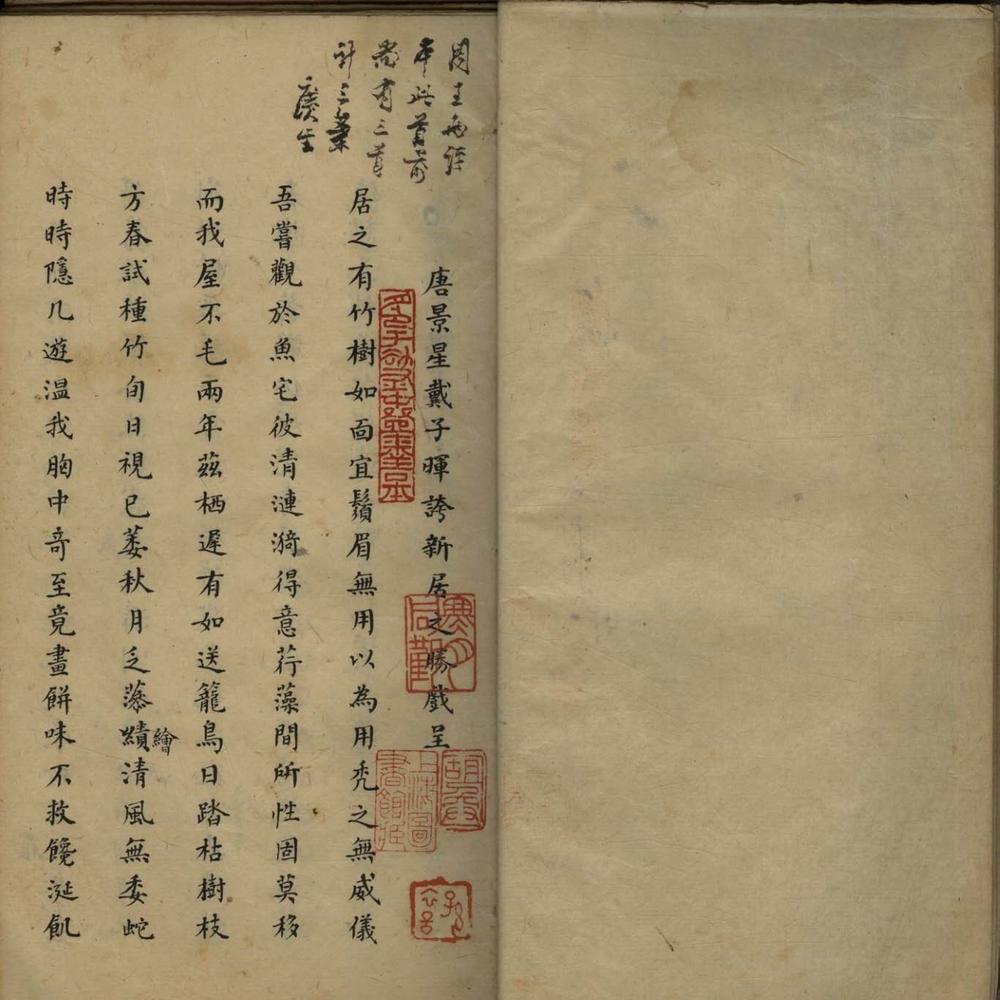 周
本此首前
尚有三首
計三葉
廣生
唐景星戴子暉誇新居之勝戲呈
居之有竹樹如面宜鬚眉無用以為用禿之無威儀
吾嘗觀於魚宅彼清漣漪得意荇藻間所性固莫移
而我屋不毛兩年茲栖遲有如送籠鳥日踏枯樹枝
方春試種竹旬日視已萎秋月乏蔘繢清風無委蛇
繪
時時隱几遊温我胸中奇至竟畫餅味不救饞涎飢
上海圖書館藏